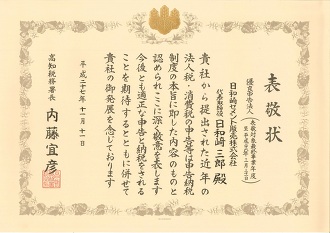 表敬状
日和崎セメント販売株式会社
代表取締役 日和崎三郎殿
貴社から提出された近年の
法人税・消費税の申告等は申告納税
制度の本旨に即した内容のものと
認められここに深く敬意を表します
今後とも適正な申告と納税をされる
ことを期待するとともに併せて
貴社の御発展を念じております
平成二十七年十一月十一日
高知税務署長 内藤宜彦